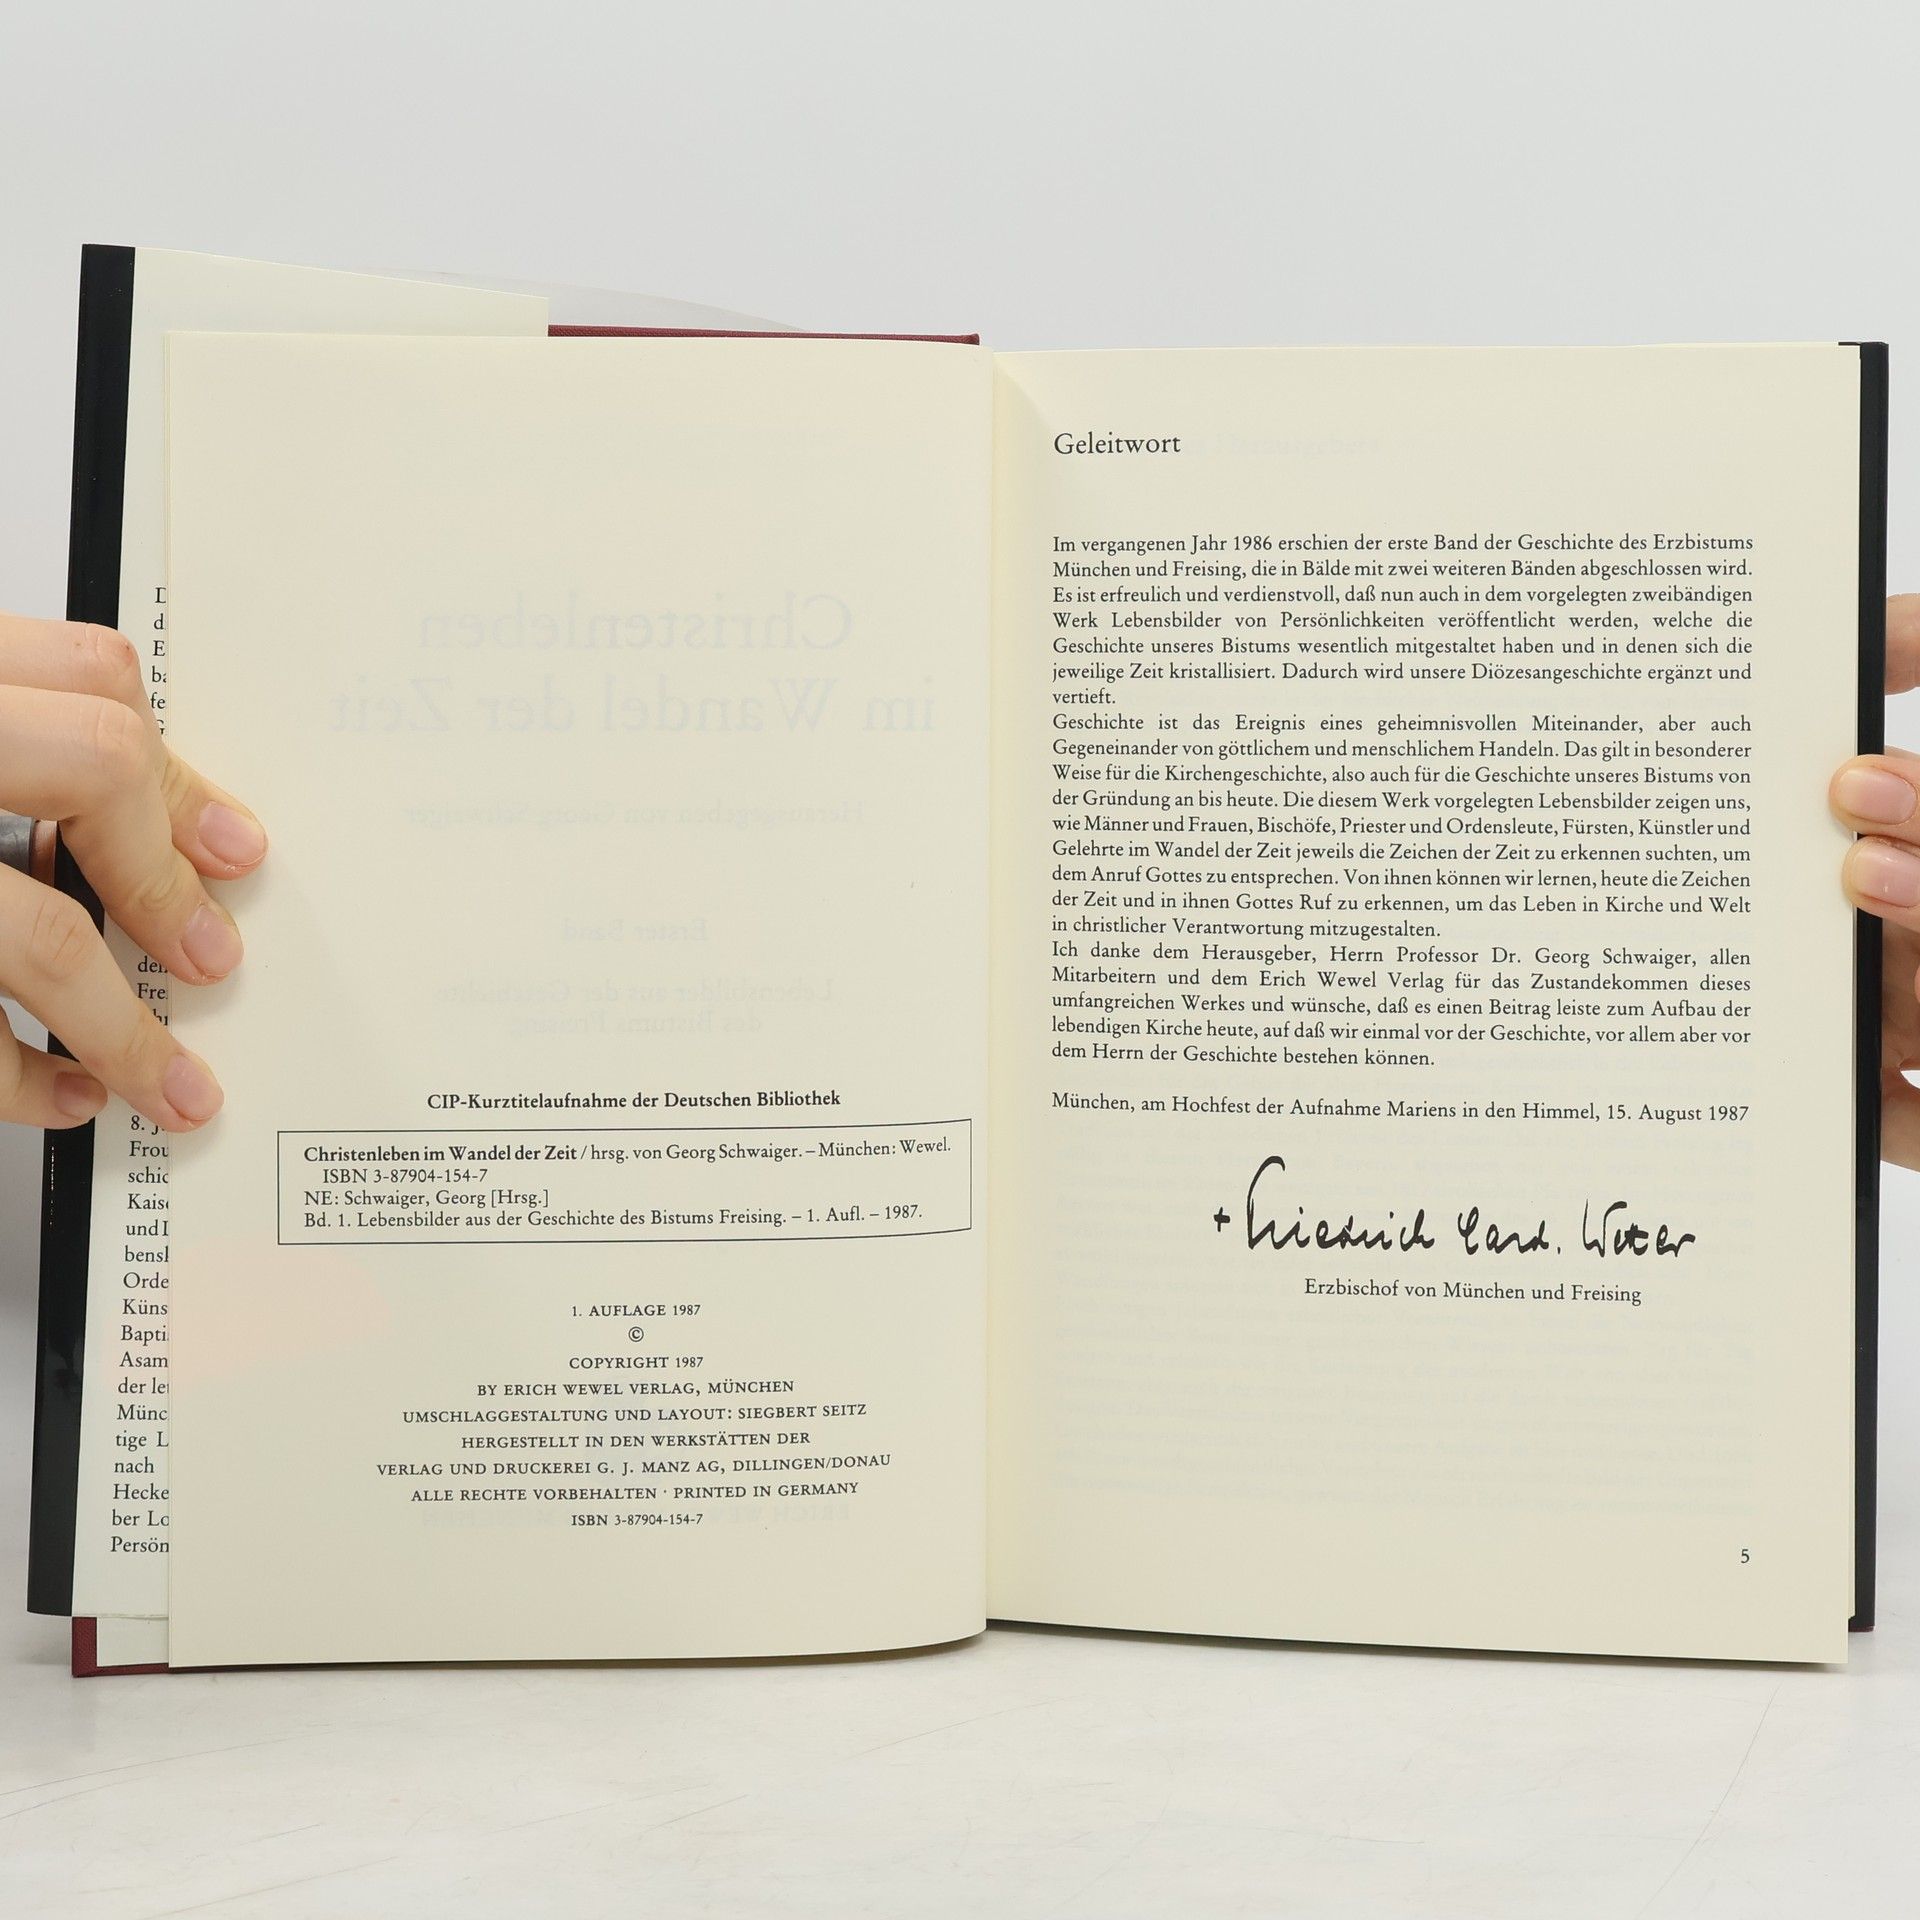 Christenleben
im Wandel der Zeit
Herausgegeben von Georg Schwaiger
Erster Band
Lebensbilder aus der Geschichte
des Bistums Freising
CIP-Kurztitelaufnahme der Deutschen Bibliothek
Christenleben im Wandel der Zeit / hrsg. von Georg Schwaiger. – München: Wewel.
ISBN 3-87904-154-7
NE: Schwaiger, Georg [Hrsg.]
Bd. 1. Lebensbilder aus der Geschichte des Bistums Freising. – 1. Aufl. – 1987.
1. AUFLAGE 1987
©
COPYRIGHT 1987
BY ERICH WEWEL VERLAG, MÜNCHEN
UMSCHLAGGESTALTUNG UND LAYOUT: SIEGBERT SEITZ
HERGESTELLT IN DEN WERKSTÄTTEN DER
VERLAG UND DRUCKEREI G. J. MANZ AG, DILLINGEN/DONAU
ALLE RECHTE VORBEHALTEN · PRINTED IN GERMANY
ISBN 3-87904-154-7
Geleitwort
Im vergangenen Jahr 1986 erschien der erste Band der Geschichte des Erzbistums
München und Freising, die in Bälde mit zwei weiteren Bänden abgeschlossen wird.
Es ist erfreulich und verdienstvoll, daß nun auch in dem vorgelegten zweibändigen
Werk Lebensbilder von Persönlichkeiten veröffentlicht werden, welche die
Geschichte unseres Bistums wesentlich mitgestaltet haben und in denen sich die
jeweilige Zeit kristallisiert. Dadurch wird unsere Diözesangeschichte ergänzt und
vertieft.
Geschichte ist das Ereignis eines geheimnisvollen Miteinander, aber auch
Gegeneinander von göttlichem und menschlichem Handeln. Das gilt in besonderer
Weise für die Kirchengeschichte, also auch für die Geschichte unseres Bistums von
der Gründung an bis heute. Die diesem Werk vorgelegten Lebensbilder zeigen uns,
wie Männer und Frauen, Bischöfe, Priester und Ordensleute, Fürsten, Künstler und
Gelehrte im Wandel der Zeit jeweils die Zeichen der Zeit zu erkennen suchten, um
dem Anruf Gottes zu entsprechen. Von ihnen können wir lernen, heute die Zeichen
der Zeit und in ihnen Gottes Ruf zu erkennen, um das Leben in Kirche und Welt
in christlicher Verantwortung mitzugestalten.
Ich danke dem Herausgeber, Herrn Professor Dr. Georg Schwaiger, allen
Mitarbeitern und dem Erich Wewel Verlag für das Zustandekommen dieses
umfangreichen Werkes und wünsche, daß es einen Beitrag leiste zum Aufbau der
lebendigen Kirche heute, auf daß wir einmal vor der Geschichte, vor allem aber vor
dem Herrn der Geschichte bestehen können.
München, am Hochfest der Aufnahme Mariens in den Himmel, 15. August 1987
+ Friedrich Card. Wetter
Erzbischof von München und Freising
5